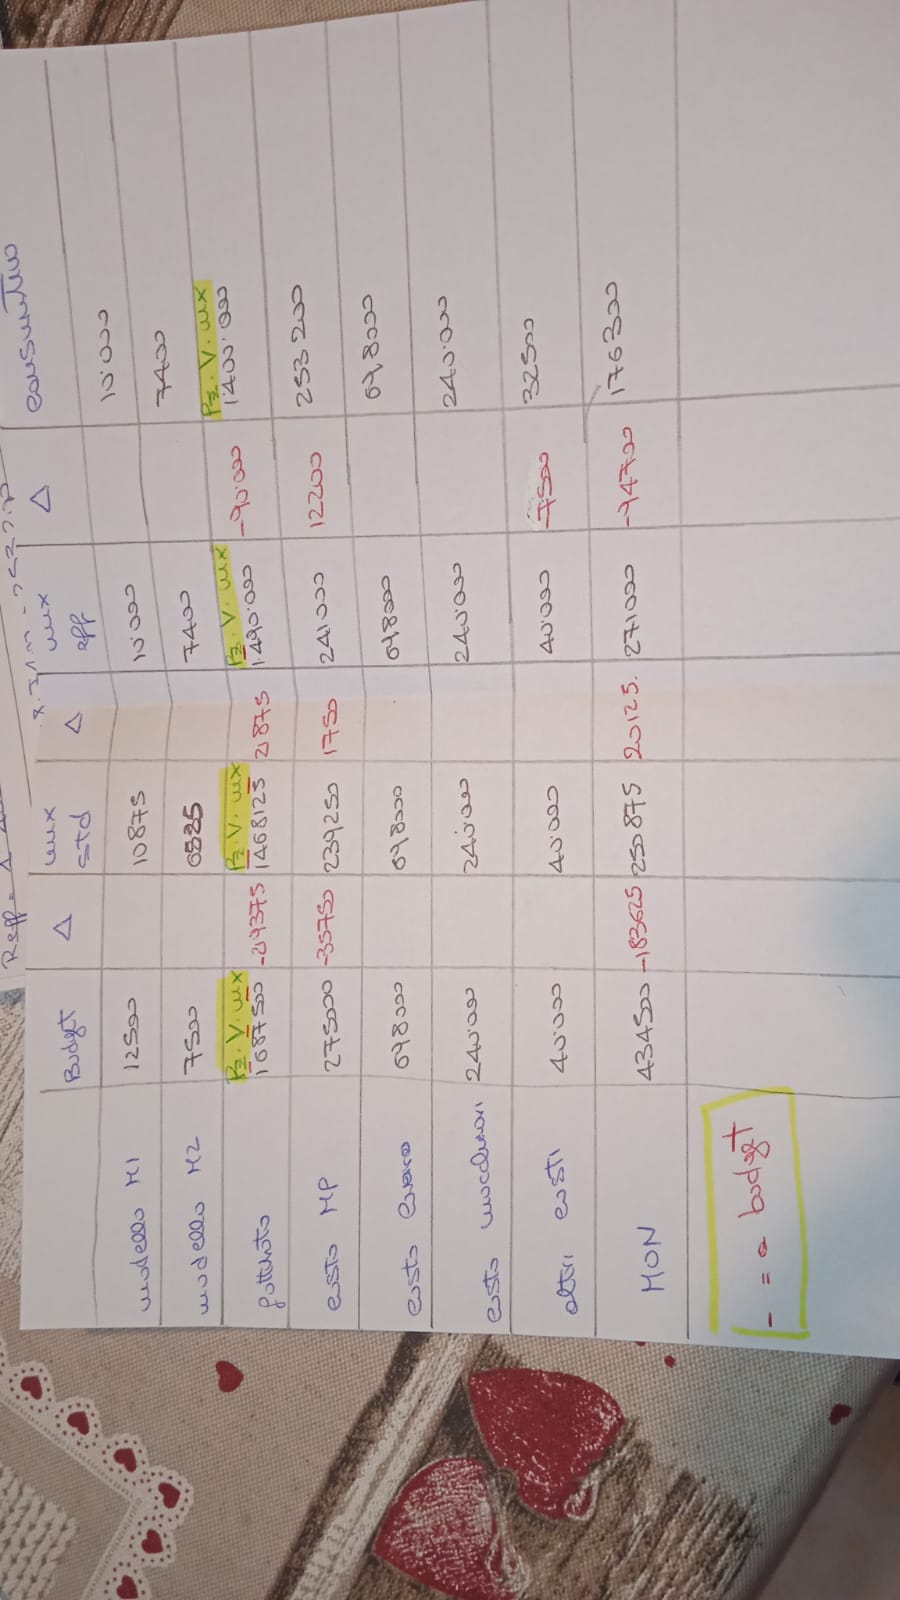 Reff =
Budget Δ mx std Δ mx eff Δ consuntivo
modello M1 12500 10875 10.000 10.000
modello M2 7500 6525 7400 7400
Pz. V. mx Pz. V. mx Pz. V. mx Pz. V. mx
fatturato 1687500 -219375 1468125 21875 1.490.000 -90.000 1.400.000
costo MP 275000 -35750 239250 1750 241000 12200 253200
costo 698000 698000 698000 698000
costo macchinari 240.000 240.000 240.000 240.000
altri costi 40.000 40.000 40.000 -7500 32500
MON 434500 -183625 250875 20125. 271000 -94700 176300
- = a budget